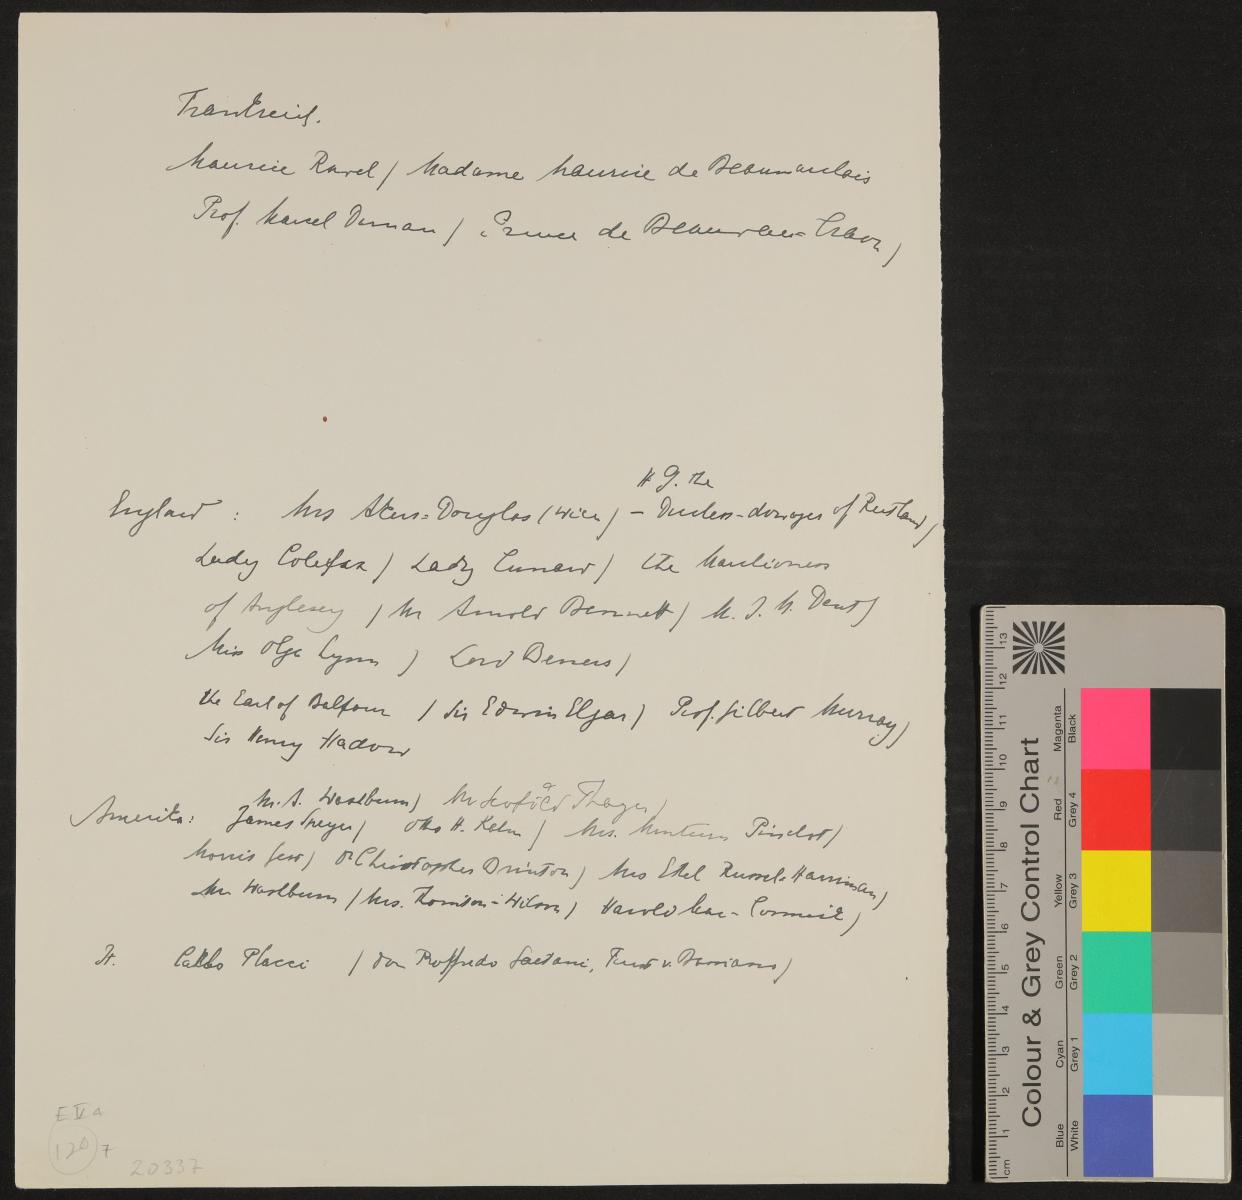 Frankreich.
Maurice Ravel / Madame Maurice de Beaumarchais
Prof. Marcel Dunan / Prince de Beauvau-Craon /
H. G. the
England : Mrs Akers-Douglas (Wien) – Duchess-dowager of Rutland /
Lady Colefax / Lady Cunard / the Marchioness
of Anglesey / Mr Arnold Bennett / M. J. M. Dent /
Miss Olga Lynn / Lord Berners /
the Earl of Balfour / Sir Edwin Elgar / Prof. Gilbert Murray /
Sir Henry Hadow
Mr. A. Washburn / Mr Scofield Thayer /
Amerika: James Speyer / Otto H. Kahn / Mrs. Pinchot /
Morris Gest / Dr Christopher Brinton / Mrs Ethel Russel-Harriman /
Mr Washburn / Mrs. Thornton-Wilson / Harold Mac-Cormick /
It. Carlo Placci / Don Roffredo Gaetani, Fürst v. Bassiano /
E IV a
120 7
20337
Colour & Grey Control Chart
Blue Cyan Green Yellow Red Magenta
White Grey 1 Grey 2 Grey 3 Grey 4 Black
cm 1 2 3 4 5 6 7 8 9 10 11 12 13